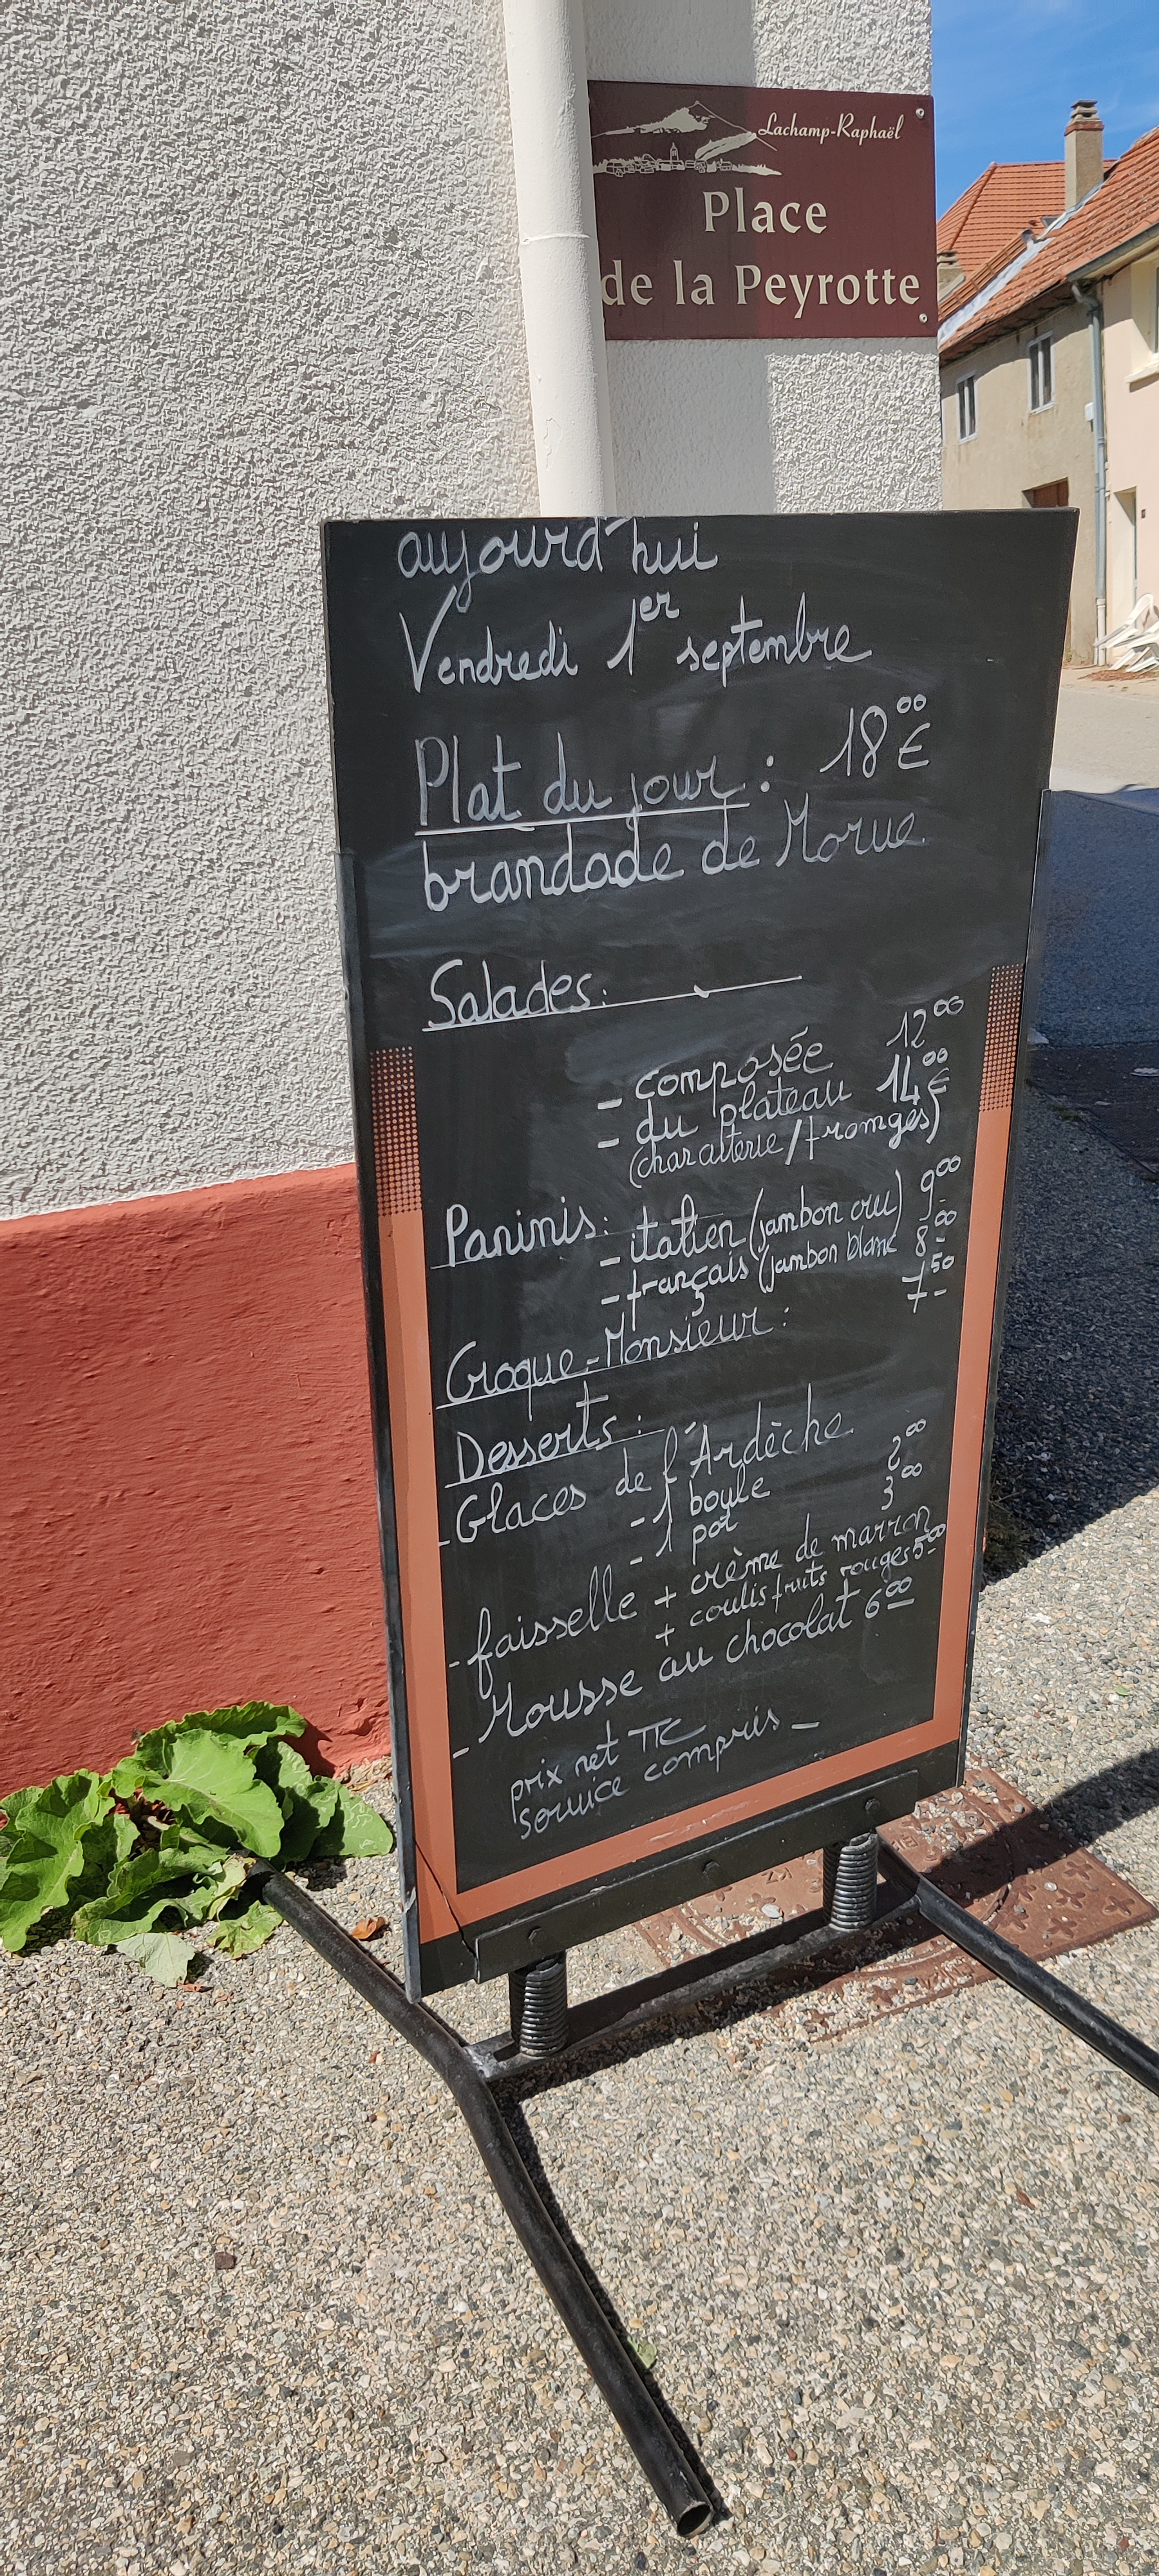 Lachamp-Raphaël
Place
de la Peyrotte
aujourd'hui
Vendredi 1er septembre
Plat du jour : 18 00 €
brandade de Morue
Salades:
- composée 12 00
- du plateau 14 00 €
(charcuterie/fromges)
Paninis: - italien (jambon cru) 9 00
- français (jambon blanc 8 00
Croque-Monsieur : 7 50
Desserts :
- Glaces de l'Ardèche
- 1 boule 2 00
- 1 pot 3 00
- faisselle + crème de marron
+ coulis fruits rouges 5 00
- Mousse au chocolat 6 00
prix net TTC
service compris -